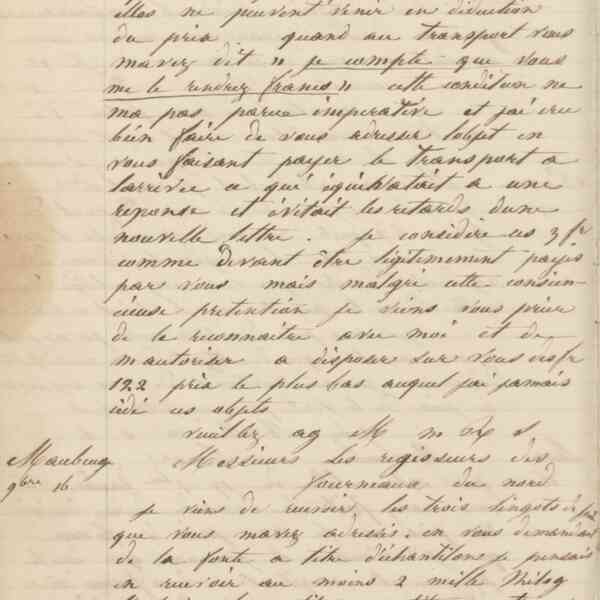 elles ne peuvent venir en déduction
du prix. quand au transport vous
mavez dit " je compte que vous
me le rendrez franco " cette condition ne
ma pas parue impérative et j'ai cru
bien faire de vous adresser lobjet en
vous faisant payer le transport a
larrivée a qui équivalait a une
reponse et évitait les retards dune
nouvelle lettre. je considère ces 3 fr
comme devant être légitimement payés
par vous mais malgré cette conscien-
cieuse pretention je viens vous prier
de le reconnaitre avec moi et de
m autoriser a disposer sur vous des fr
122 prix le plus bas auquel jai jamais
cédé ces objets
veuillez ag M
Maubeuge Messieurs les regisseurs des
9bre 16 fourneaux du nord
je viens de recevoir les trois lingots de
que vous mavez adressés. en vous demandant
de la fonte a titre d'échantillons je pensais
en recevoir au moins 2 mille Kilog